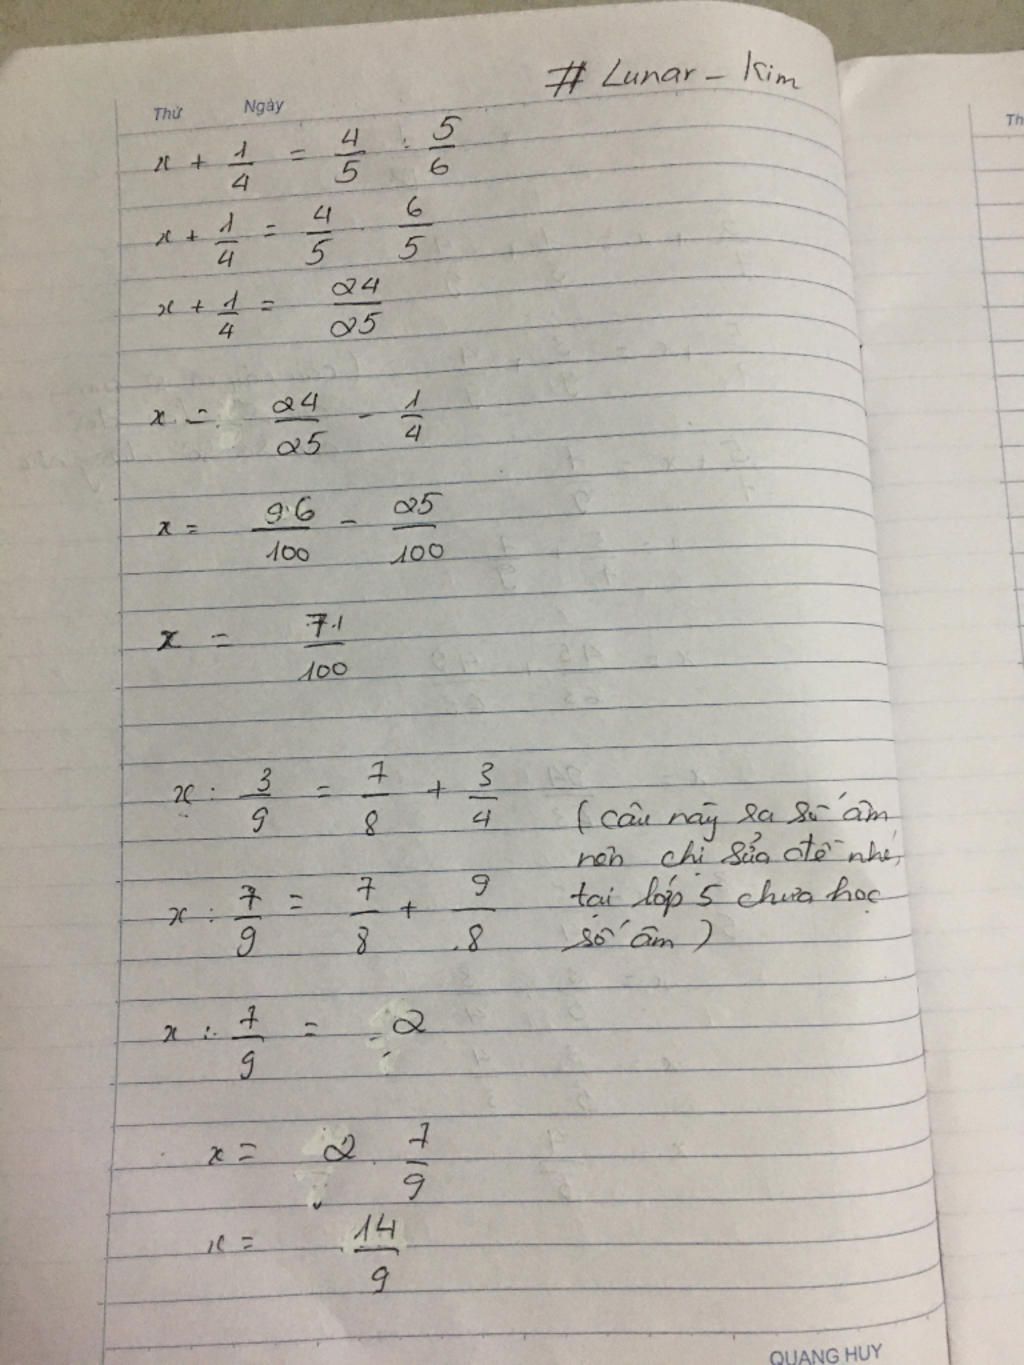 # Lunar - Kim
Thứ Ngày
Th
x + 1/4 = 4/5 : 5/6
x + 1/4 = 4/5 . 6/5
x + 1/4 = 24/25
x = 24/25 - 1/4
x = 96/100 - 25/100
x = 71/100
x : 3/9 = 7/8 + 3/4
(câu này ra số âm
nên chị sửa đề nhé,
x : 7/9 = 7/8 + 9/8
tại lớp 5 chưa học
số âm)
x : 7/9 = 2
x = 2 . 7/9
x = 14/9
QUANG HUY